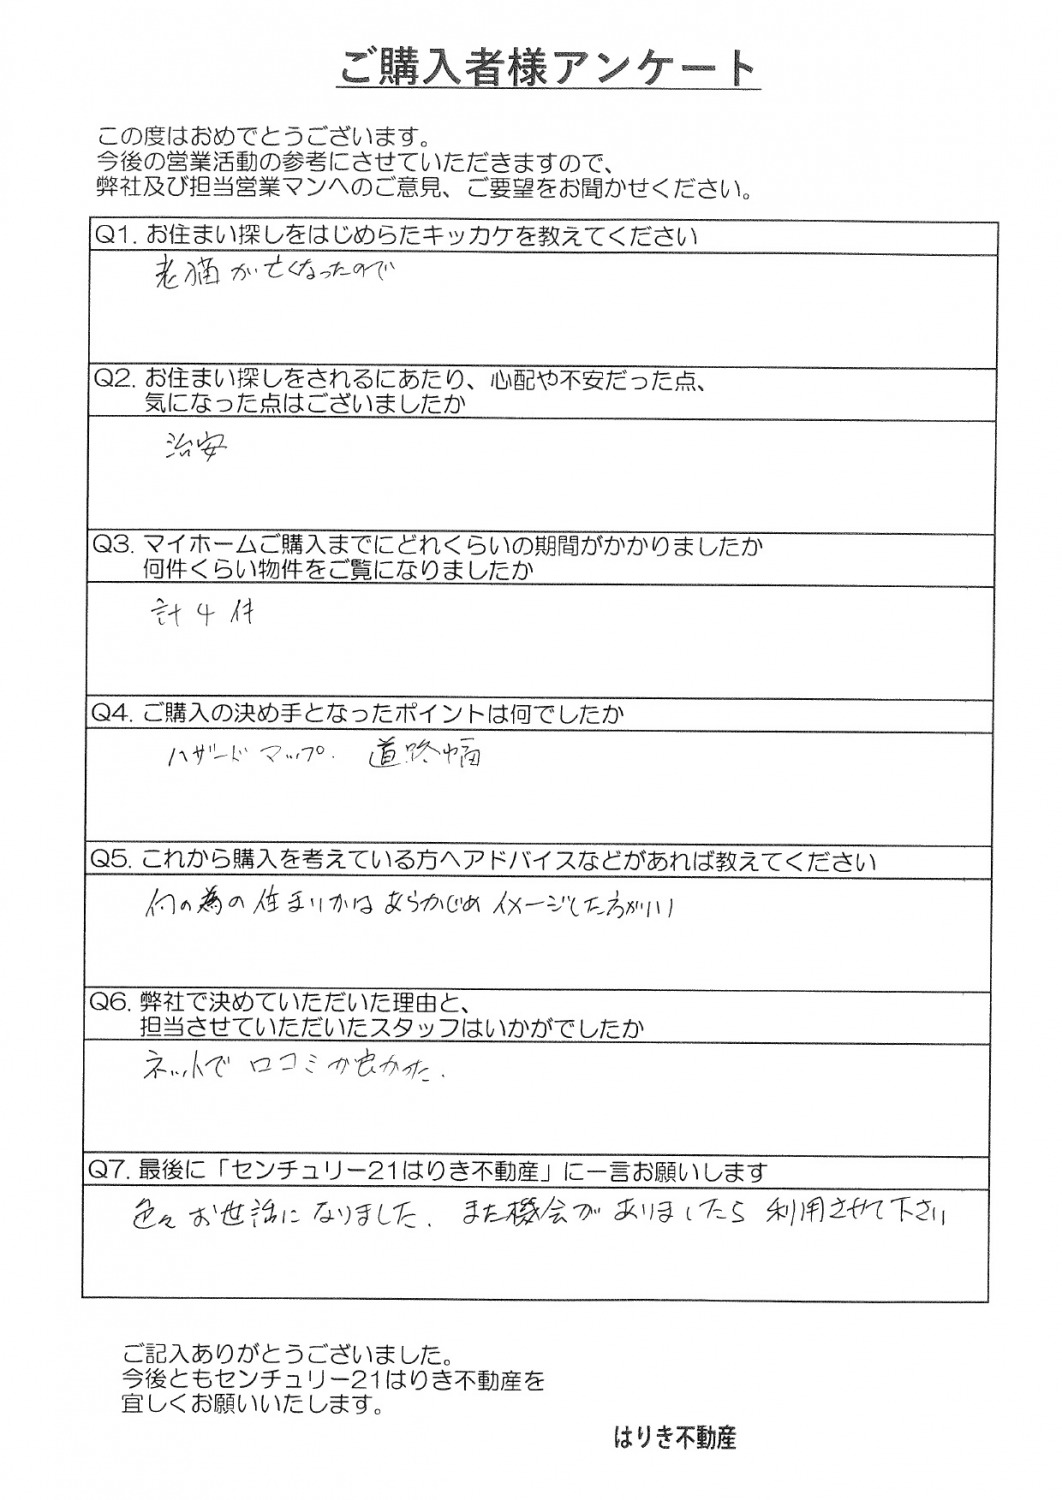 ご購入者様アンケート
この度はおめでとうございます。
今後の営業活動の参考にさせていただきますので、
弊社及び担当営業マンへのご意見、ご要望をお聞かせください。
Q1. お住まい探しをはじめらたキッカケを教えてください
老猫が亡くなったので
Q2. お住まい探しをされるにあたり、心配や不安だった点、
気になった点はございましたか
治安
Q3. マイホームご購入までにどれくらいの期間がかかりましたか
何件くらい物件をご覧になりましたか
計4件
Q4. ご購入の決め手となったポイントは何でしたか
ハザードマップ. 道路幅
Q5. これから購入を考えている方へアドバイスなどがあれば教えてください
何の為の住まいかはあらかじめイメージした方がいい
Q6. 弊社で決めていただいた理由と、
担当させていただいたスタッフはいかがでしたか
ネットで口コミが良かった.
Q7. 最後に「センチュリー21はりき不動産」に一言お願いします
色々お世話になりました. また機会がありましたら利用させて下さい
ご記入ありがとうございました。
今後ともセンチュリー21はりき不動産を
宜しくお願いいたします。
はりき不動産